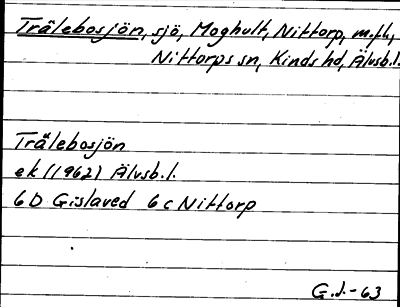 Trälebosjön, sjö, Moghult, Nittorp, m.fl.,
Nittorps sn, Kinds hd, Älvsb.l.
Trälebosjön
ek (1962) Älvsb.l.
6D Gislaved 6c Nittorp
G.J.-63